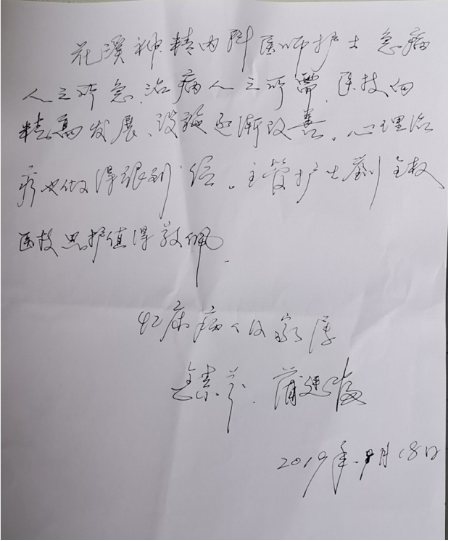 花溪神精内科医师护士急病
人之所急,治病人之所需,医技向
精高发展、设施逐渐改善,心理治
疗也做得很到位。主管护士刘
医技照护值得敬佩。
42床病人及家属
2019年9月18日